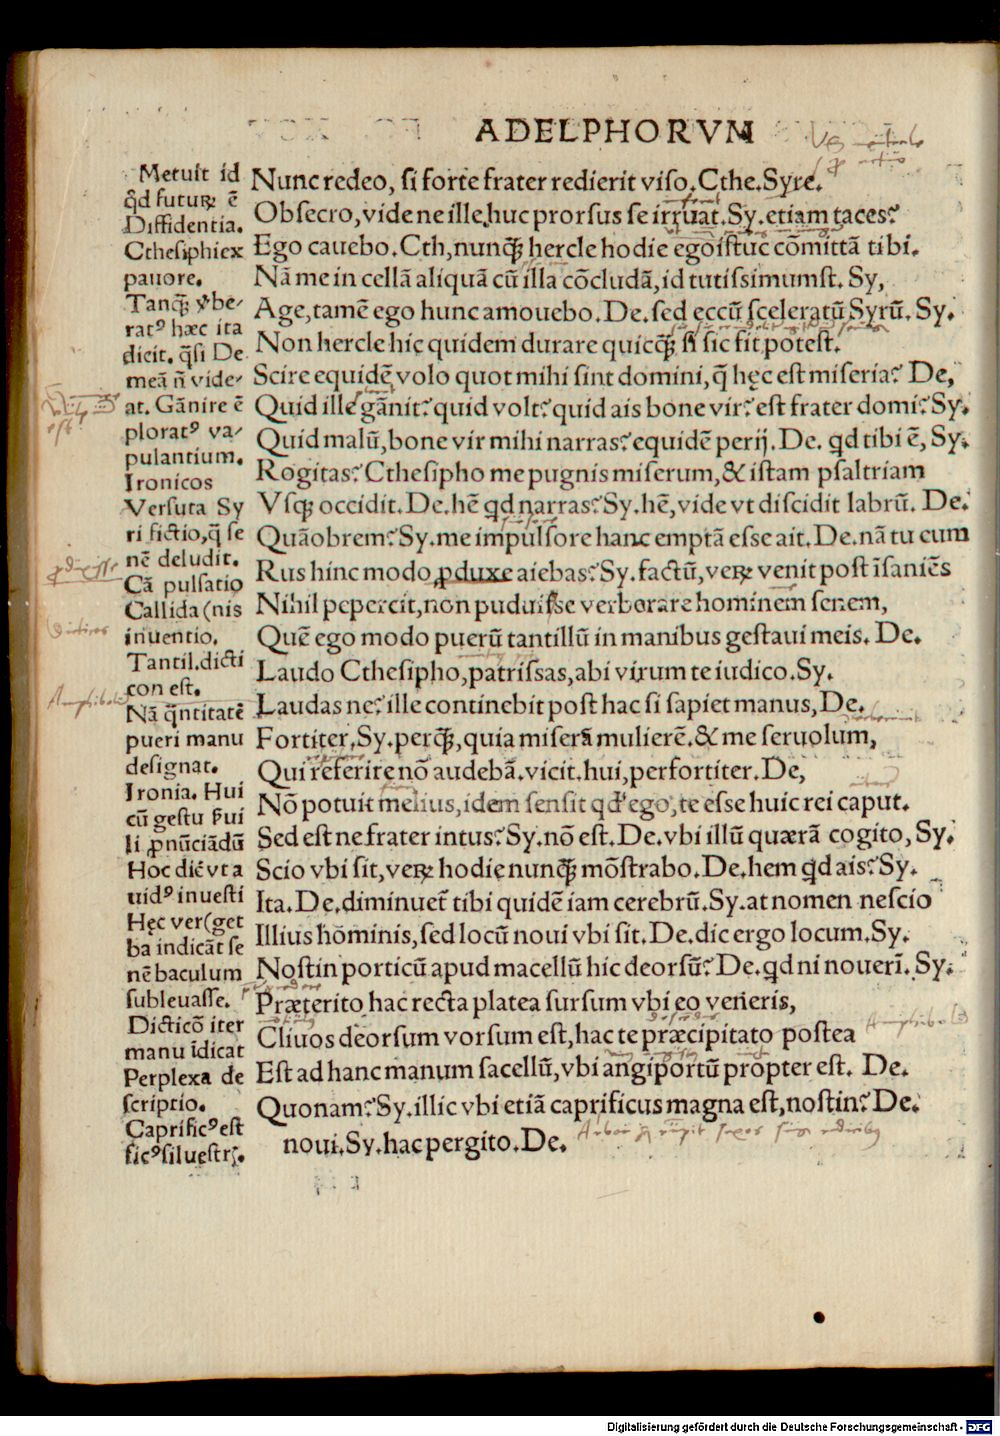 ADELPHORVM
Metuit id
qd̃ futuꝝ ẽ
Diffidentia.
Cthesiphiex
pauore.
Tanq̃ꝫ v̓be⸗
ratꝰ hæc ita
dicit. q̃si De
meã ñ vide⸗
at. Gãnire ẽ
ploratꝰ va⸗
pulantium.
Ironicos
Versuta Sy
ri fictio, q̃ se
nẽ deludit.
Cã pulsatio
Callida (nis
inuentio.
Tantil. dicti
con est.
Nã q̃ntitatẽ
pueri manu
designat.
Ironia. Hui
cũ gestu ẜui
li ꝓnũciãdũ
Hoc dic̃ vt a
uidꝰ inuesti
Hęc ver (get
ba indicãt se
nẽ baculum
subleuasse.
Dicticõ iter
manu ĩdicat
Perplexa de
scriptio.
Caprificꝰ est
ficꝰ siluestrꝭ.
Nunc redeo, si forte frater redierit viso. Cthe. Syre.
Obsecro, vide ne ille huc prorsus se irruat. Sy. etiam taces?
Ego cauebo. Cth, nunq̃ꝫ hercle hodie ego istuc cõmittã tibi.
Nã me in cellã aliquã cũ illa cõcludã, id tutissimumst. Sy,
Age, tamẽ ego hunc amouebo. De. sed eccũ sceleratũ Syrũ. Sy.
Non hercle hic quidem durare quicq̃ꝫ si sic fit potest.
Scire equidẽ volo quot mihi sint domini, q̃ hęc est miseria? De,
Quid ille gãnit? quid volt? quid ais bone vir? est frater domi? Sy.
Quid malũ, bone vir mihi narras? equidẽ perij. De. qd tibi ẽ, Sy.
Rogitas? Cthesipho me pugnis miserum, & istam psaltriam
Vsqꝫ occidit. De. hẽ qd narras? Sy. hẽ, vide vt discidit labrũ. De.
Quãobrem? Sy. me impulsore hanc emptã esse ait. De. nã tu eum
Rus hinc modo ꝓduxe aiebas? Sy. factũ, veꝝ venit post ĩsaniẽs
Nihil pepercit, non puduisse verberare hominem senem,
Quẽ ego modo puerũ tantillũ in manibus gestaui meis. De.
Laudo Cthesipho, patrissas, abi virum te iudico. Sy.
Laudas ne? ille continebit post hac si sapiet manus, De.
Fortiter. Sy. perq̃ꝫ, quia miserã mulierẽ. & me seruolum,
Qui referire nõ audebã. vicit. hui, perfortiter. De,
Nõ potuit melius, idem sensit qd' ego, te esse huic rei caput.
Sed est ne frater intus? Sy. nõ est. De. vbi illũ quærã cogito, Sy.
Scio vbi sit, veꝝ hodie nunq̃ꝫ mõstrabo. De. hem qd ais? Sy.
Ita. De. diminuet̃ tibi quidẽ iam cerebrũ. Sy. at nomen nescio
Illius hominis, sed locũ noui vbi sit. De. dic ergo locum. Sy.
Nostin porticũ apud macellũ hic deorsũ? De. qd ni nouerĩ. Sy.
Præterito hac recta platea sursum vbi eo veneris,
Cliuos deorsum vorsum est, hac te præcipitato postea
Est ad hanc manum sacellũ, vbi angiportũ propter est. De.
Quonam? Sy. illic vbi etiã caprificus magna est, nostin? De.
noui. Sy. hac pergito. De.
Digitalisierung gefördert durch die Deutsche Forschungsgemeinschaft - DFG